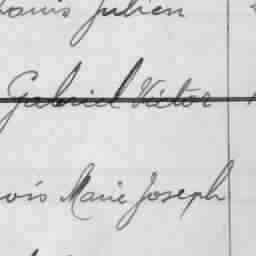 Louis Julien
Gabriel Victor
ois Marie Joseph